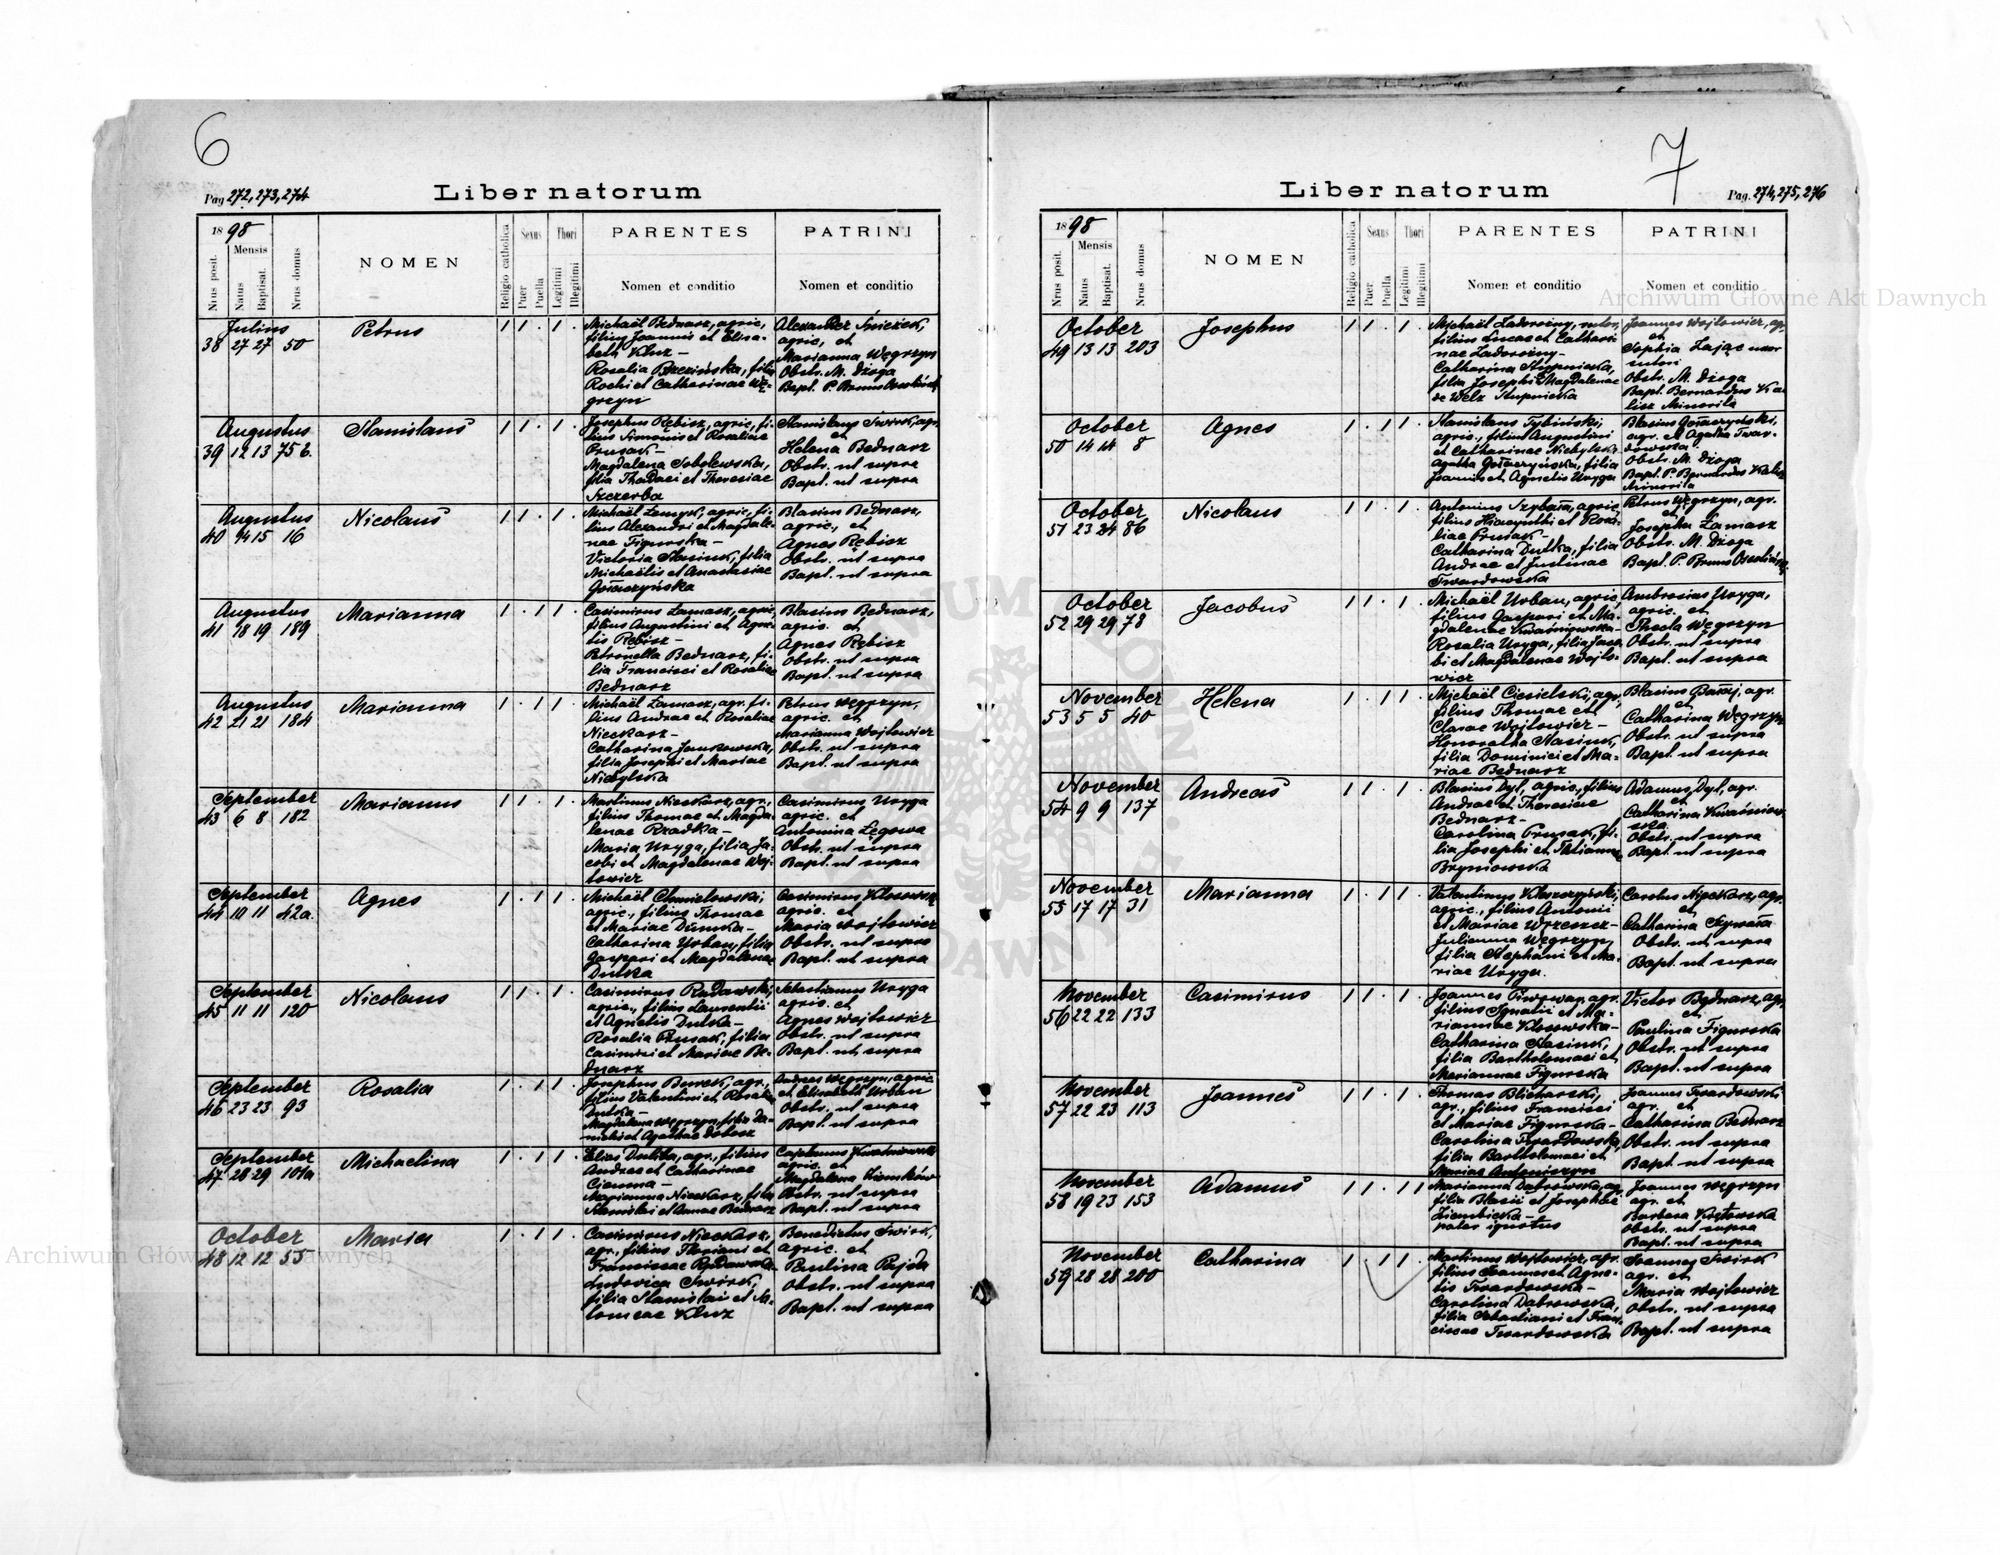 6
Pag 272, 273, 274
Liber natorum
1898
Nrus posit.
Mensis
Natus
Baptisat.
Nrus domus
NOMEN
Religio catholica
Sexus
Puer
Puella
Thori
Legitimi
Illegitimi
PARENTES
Nomen et conditio
PATRINI
Nomen et conditio
Julius
38 27 27 50
Petrus
1 1 . 1 .
Michaël Bednarz, agric,
filius Joannis et Elisa-
beth Kluz -
Rosalia Brzezińska, filia
Rochi et Catharinae Wę-
grzyn
Alexander Śnieżek,
agric, et
Marianna Węgrzyn
Obstr. M. Dżoga
Bapt. P. Bruno
Augustus
39 12 13 756.
Stanislaus
1 1 . 1 .
Josephus Rębisz, agric, fi-
lius Simonis et Rosaliae
Prusak -
Magdalena Sobolewska,
filia Thadaei et Theresiae
Szczerba
Stanislaus Świrk, agr.
et
Helena Bednarz
Obstr. ut supra
Bapt. ut supra
Augustus
40 14 15 16
Nicolaus
1 1 . 1 .
Michaël agric, fi-
lius Alexandri et Magdale-
nae Figurska -
Victoria Stasiuk, filia
Michaëlis et Anastasiae
Gołaczyńska
Blasius Bednarz,
agric, et
Agnes Rębisz
Obstr. ut supra
Bapt. ut supra
Augustus
41 18 19 189
Marianna
1 . 1 1 .
Casimirus Łamasz, agric,
filius Augustini et Agne-
tis Rębisz -
Petronella Bednarz, fi-
lia Francisci et Rosaliae
Bednarz
Blasius Bednarz,
agric. et
Agnes Rębisz
Obstr. ut supra
Bapt. ut supra
Augustus
42 21 21 184
Marianna
1 . 1 1 .
Michaël Łamasz, agr. fi-
lius Andreae et Rosaliae
Nieckarz -
Catharina Jankowska,
filia Josephi et Mariae
Niebylska
Petrus Węgrzyn,
agric. et
Marianna Wojtowicz
Obstr. ut supra
Bapt. ut supra
September
43 6 8 182
Marianus
1 1 . 1 .
Martinus Nieckarz, agr.,
filius Thomae et Magda-
lenae Rzadka -
Maria Uryga, filia Ja-
cobi et Magdalenae Woj-
towicz
Casimirus Uryga
agric. et
Antonina Łęgowa
Obstr. ut supra
Bapt. ut supra
September
44 10 11 42a
Agnes
1 . 1 1 .
Michaël Chmielowski,
agric., filius Thomae
et Mariae Dumka -
Catharina Urban, filia
Gaspari et Magdalenae
Dutka
Casimirus Kłosowski
agric. et
Maria Wojtowicz
Obstr. ut supra
Bapt. ut supra
September
45 11 11 120
Nicolaus
1 1 . 1 .
Casimirus Radawski,
agric., filius Laurentii
et Agnetis Dutka -
Rosalia Prusak, filia
Casimiri et Mariae Be-
dnarz
Sebastianus Uryga
agric. et
Agnes Wojtowicz
Obstr. ut supra
Bapt. ut supra
September
46 23 23 93
Rosalia
1 . 1 1 .
Josephus Burek, agr.,
filius Valentini et Rosaliae
Dutka -
Magdalena Węgrzyn, filia Da-
nielis et Agathae Dobosz
Andreas Węgrzyn, agric.
et Elisabeth Urban
Obstr. ut supra
Bapt. ut supra
September
47 28 29 101a
Michaelina
1 . 1 1 .
Elias Dutka, agr., filius
Andreae et Catharinae
Cianna -
Marianna Nieckarz, filia
Stanislai et Annae Bednarz
Cajetanus
agric. et
Magdalena
Obstr. ut supra
Bapt. ut supra
October
48 12 12 55
Maria
1 . 1 1 .
Casimirus Nieckarz,
agr., filius Floriani et
Franciscae Radawska
Ludovica Świrk,
filia Stanislai et Sa-
lomeae Kluz
Benedictus Świrk,
agric. et
Paulina Pajda
Obstr. ut supra
Bapt. ut supra
7
Liber natorum
Pag. 274, 275, 276
1898
Nrus posit.
Mensis
Natus
Baptisat.
Nrus domus
NOMEN
Religio catholica
Sexus
Puer
Puella
Thori
Legitimi
Illegitimi
PARENTES
Nomen et conditio
PATRINI
Nomen et conditio
October
49 13 13 203
Josephus
1 1 . 1 .
Michaël Zadorożny, sutor,
filius Lucae et Cathari-
nae Zadorożny -
Catharina Stupnicka,
filia Josephi Magdalenae
de Welz Stupnicka
Joannes Wojtowicz, agr.
et
Sophia Zając uxor
sutri
Obstr. M. Dżoga
Bapt. Bernardus Ka-
lisz Minorita
October
50 14 14 8
Agnes
1 . 1 1 .
Stanislaus Tybiński,
agric., filius Augustini
et Catharinae Niebylska
Agatha Gołaczyńska, filia
Joannis et Agnetis Uryga
Blasius Gołaczyński,
agr. et Agatha Twar-
dowska
Obstr. M. Dżoga
Bapt. P. Bernardus Kalisz
Minorita
October
51 23 24 86
Nicolaus
1 1 . 1 .
Antonius Szybała, agric.
filius Hiacynthi et Rosa-
liae Prusak -
Catharina Dutka, filia
Andreae et Justinae
Twardowska
Petrus Węgrzyn, agr.
et
Josepha Łamasz
Obstr. M. Dżoga
Bapt. P. Bruno
October
52 29 29 78
Jacobus
1 1 . 1 .
Michaël Urban, agric.,
filius Gaspari et Ma-
gdalenae Kwaśniowska -
Rosalia Uryga, filia Jaco-
bi et Magdalenae Wojto-
wicz
Ambrosius Uryga,
agric. et
Thecla Węgrzyn
Obstr. ut supra
Bapt. ut supra
November
53 5 5 40
Helena
1 . 1 1 .
Michaël Ciesielski, agr.,
filius Thomae et
Clarae Wojtowicz -
Honoratha Stasiuk,
filia Dominici et Ma-
riae Bednarz
Blasius agr.
et
Catharina Węgrzyn
Obstr. ut supra
Bapt. ut supra
November
54 9 9 137
Andreas
1 1 . 1 .
Blasius Dyl, agric., filius
Andreae et Theresiae
Bednarz -
Carolina Prusak, fi-
lia Josephi et Marianna
Bryniowska
Adamus Dyl, agr.
et
Catharina Kwaśniow-
ska
Obstr. ut supra
Bapt. ut supra
November
55 17 17 31
Marianna
1 . 1 1 .
Valentinus Kleszczyński,
agric., filius Antonii
et Mariae Wrzeszcz -
Julianna Węgrzyn
filia Stephani et Ma-
riae Uryga.
Carolus Nieckarz, agr.
et
Catharina Szybała
Obstr. ut supra
Bapt. ut supra
November
56 22 22 133
Casimirus
1 1 . 1 .
Joannes Piwowar, agr.
filius Ignatii et Ma-
riannae Kłosowska -
Catharina Stasiuk,
filia Bartholomaei et
Mariannae Figurska
Victor Bednarz, agr.
et
Paulina Figurska
Obstr. ut supra
Bapt. ut supra
November
57 22 23 113
Joannes
1 1 . 1 .
Thomas Blicharski,
agr., filius Francisci
et Mariae Figurska -
Carolina Twardowska,
filia Bartholomaei et
Mariae Antoniszyn
Joannes Twardowski
agr. et
Catharina Bednarz
Obstr. ut supra
Bapt. ut supra
November
58 19 23 153
Adamus
1 1 . 1 1
Marianna Dąbrowska, agr.
filia Blasii et Josephae
Ziembicka -
pater ignotus
Joannes Węgrzyn
agr. et
Barbara Kozłowska
Obstr. ut supra
Bapt. ut supra
November
59 28 28 200
Catharina
1 . 1 1 .
Martinus Wojtowicz, agr.
filius Joannes et Agne-
tis Twardowska -
Carolina Dąbrowska,
filia Sebastiani et Fran-
ciscae Twardowska
Joannes Świrk
agr. et
Maria Wojtowicz
Obstr. ut supra
Bapt. ut supra
Archiwum Główne Akt Dawnych
Archiwum Główne Akt Dawnych